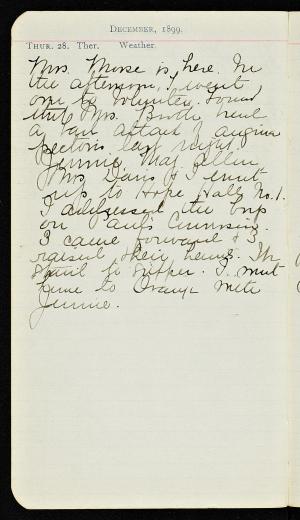 DECEMBER, 1899.
THUR. 28. Ther. Weather.
Mrs. Morse is here. In
the afternoon, I went
over to Volunteer. Found
that Mrs. Booth had
a bad attack of angina
pectoris last night.
Jennie, Maj.
Mrs. Davis & I went
up to Hope Hall No. 1.
I addressed the boys
on
3 came forward & 3
raised their hands.
to supper. I went
home to Orange with
Jennie.